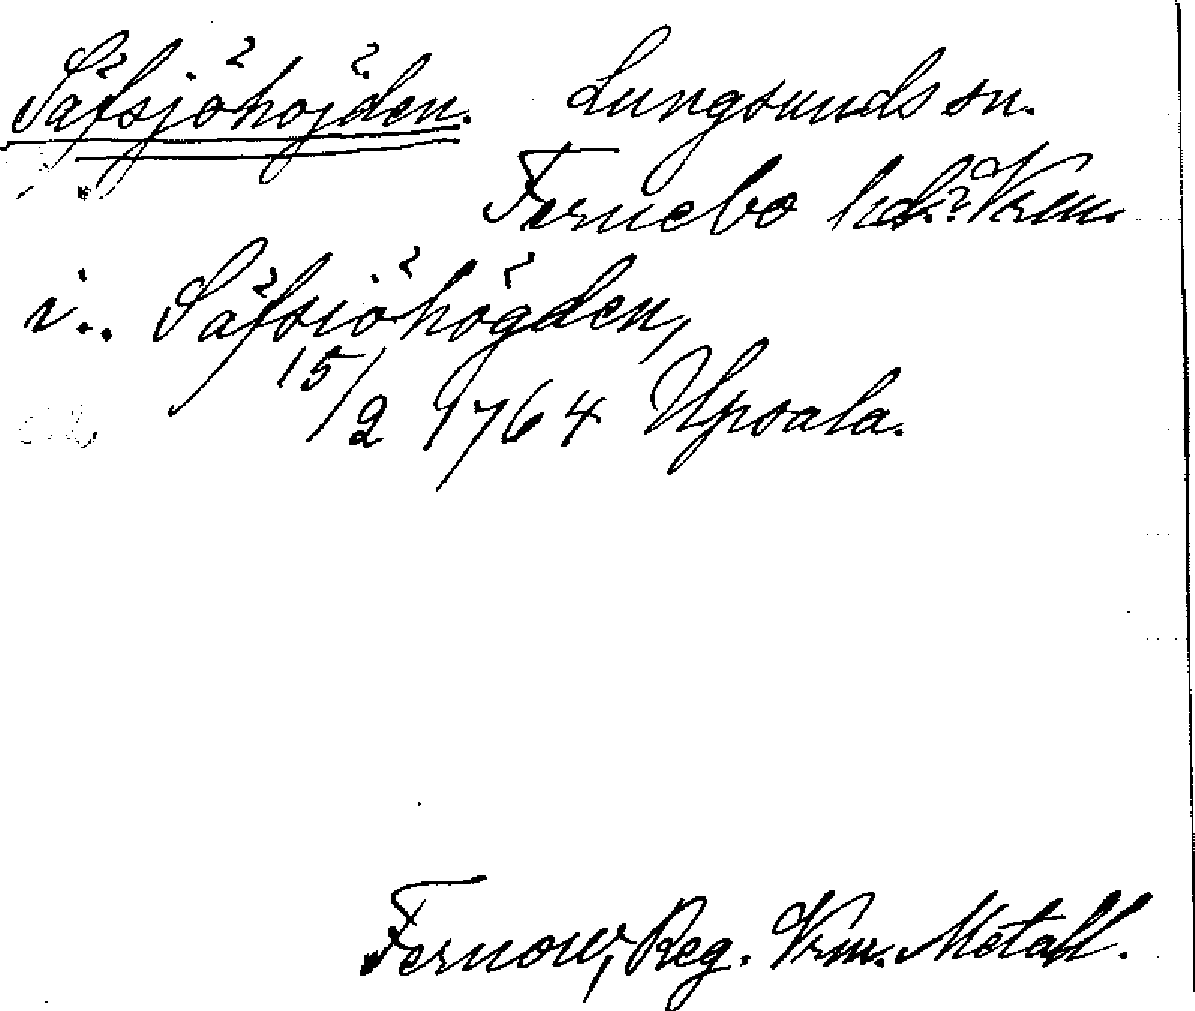 Säfsjöhöjden. Lungsunds sn.
Fernebo hd. Vrm.
i.. Säfsiöhögden,
15/2 1764 Upsala.
Fernow, Reg. Vrm. Metall.